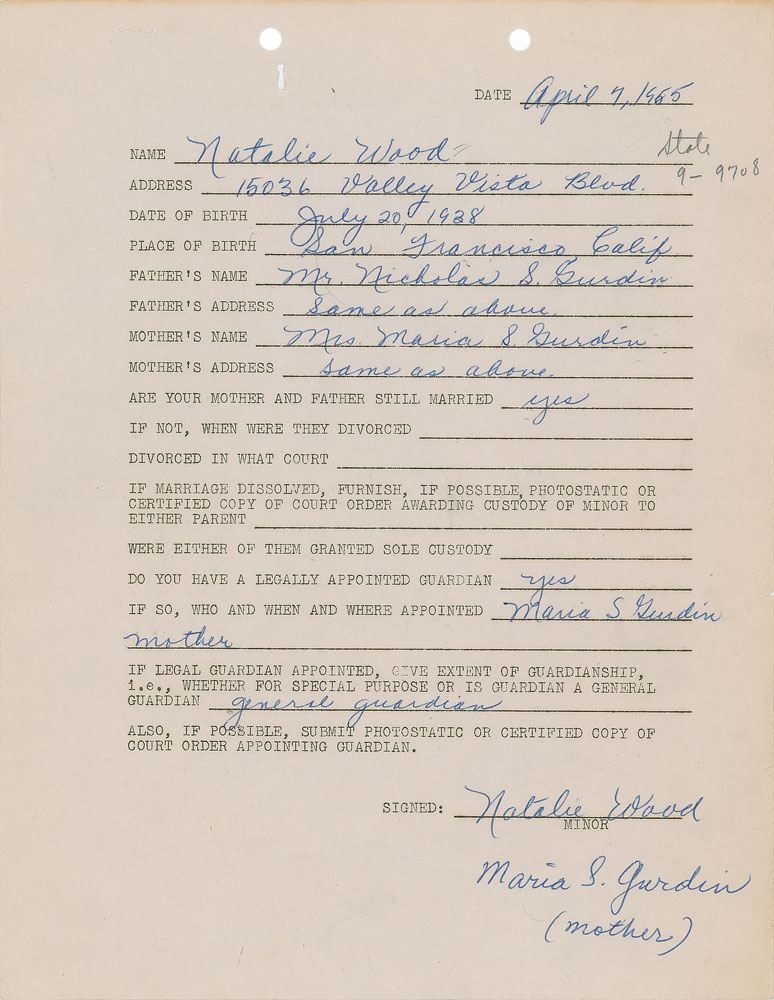 DATE April 7, 1955
NAME Natalie Wood
State
9-9708
ADDRESS 15036 Valley Vista Blvd.
DATE OF BIRTH July 20, 1938
PLACE OF BIRTH San Francisco Calif
FATHER'S NAME Mr. Nicholas S. Gurdin
FATHER'S ADDRESS Same as above.
MOTHER'S NAME Mrs. Maria S Gurdin
MOTHER'S ADDRESS Same as above.
ARE YOUR MOTHER AND FATHER STILL MARRIED yes
IF NOT, WHEN WERE THEY DIVORCED
DIVORCED IN WHAT COURT
IF MARRIAGE DISSOLVED, FURNISH, IF POSSIBLE, PHOTOSTATIC OR
CERTIFIED COPY OF COURT ORDER AWARDING CUSTODY OF MINOR TO
EITHER PARENT
WERE EITHER OF THEM GRANTED SOLE CUSTODY
DO YOU HAVE A LEGALLY APPOINTED GUARDIAN yes
IF SO, WHO AND WHEN AND WHERE APPOINTED Maria S Gurdin
mother
IF LEGAL GUARDIAN APPOINTED, GIVE EXTENT OF GUARDIANSHIP,
i.e., WHETHER FOR SPECIAL PURPOSE OR IS GUARDIAN A GENERAL
GUARDIAN general guardian
ALSO, IF POSSIBLE, SUBMIT PHOTOSTATIC OR CERTIFIED COPY OF
COURT ORDER APPOINTING GUARDIAN.
SIGNED: Natalie Wood
MINOR
Maria S. Gurdin
(mother)